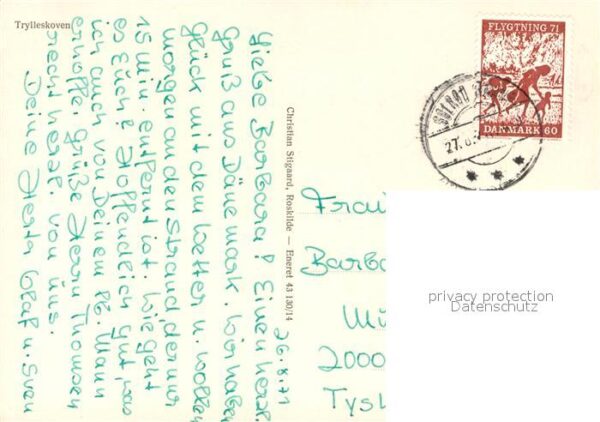 Trylleskoven
26.8.71
Liebe Barbara! Einen herzl.
Gruß aus Dänemark. Wir haben
Glück mit dem Wetter u. wollen
morgen an den Strand, der nur
15 min. entfernt ist. Wie geht
es Euch? Hoffentlich gut, was
ich auch von Deinem Mann
erhoffe. Grüße Herrn Thomsen
recht herzl. von uns.
Deine Herta Olaf u. Sven
Christian Stigaard, Roskilde — Eneret 43 130/14
FLYGTNING 71
DANMARK 60
27.8.
Frau
Barba
Mü
2000
Tysl
privacy protection
Datenschutz